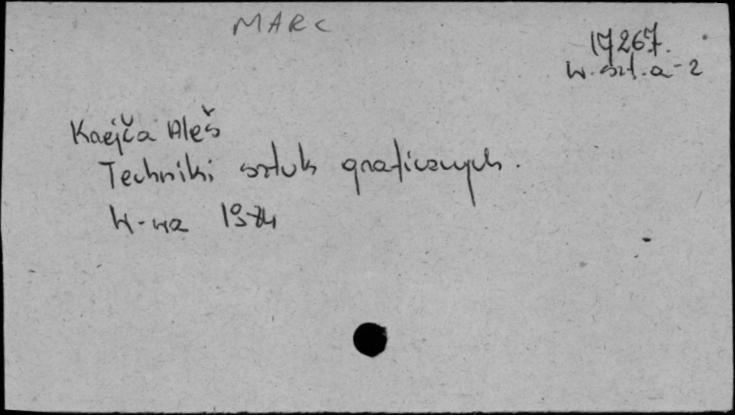 MARC
17267.
W. szt. a-2
Krejča Aleš
Techniki sztuk graficznych.
W-wa 1984